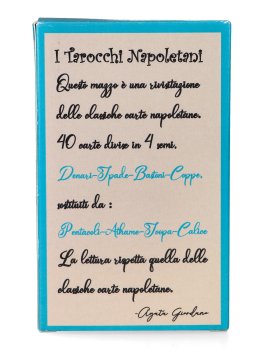 I Tarocchi Napoletani
Questo mazzo è una rivisitazione
delle classiche carte napoletane.
40 carte divise in 4 semi.
Denari-Spade-Bastoni-Coppe,
sostituiti da :
Pentacoli-Athame-Scopa-Calice
La lettura rispetta quella delle
classiche carte napoletane.
-Agata Giordano